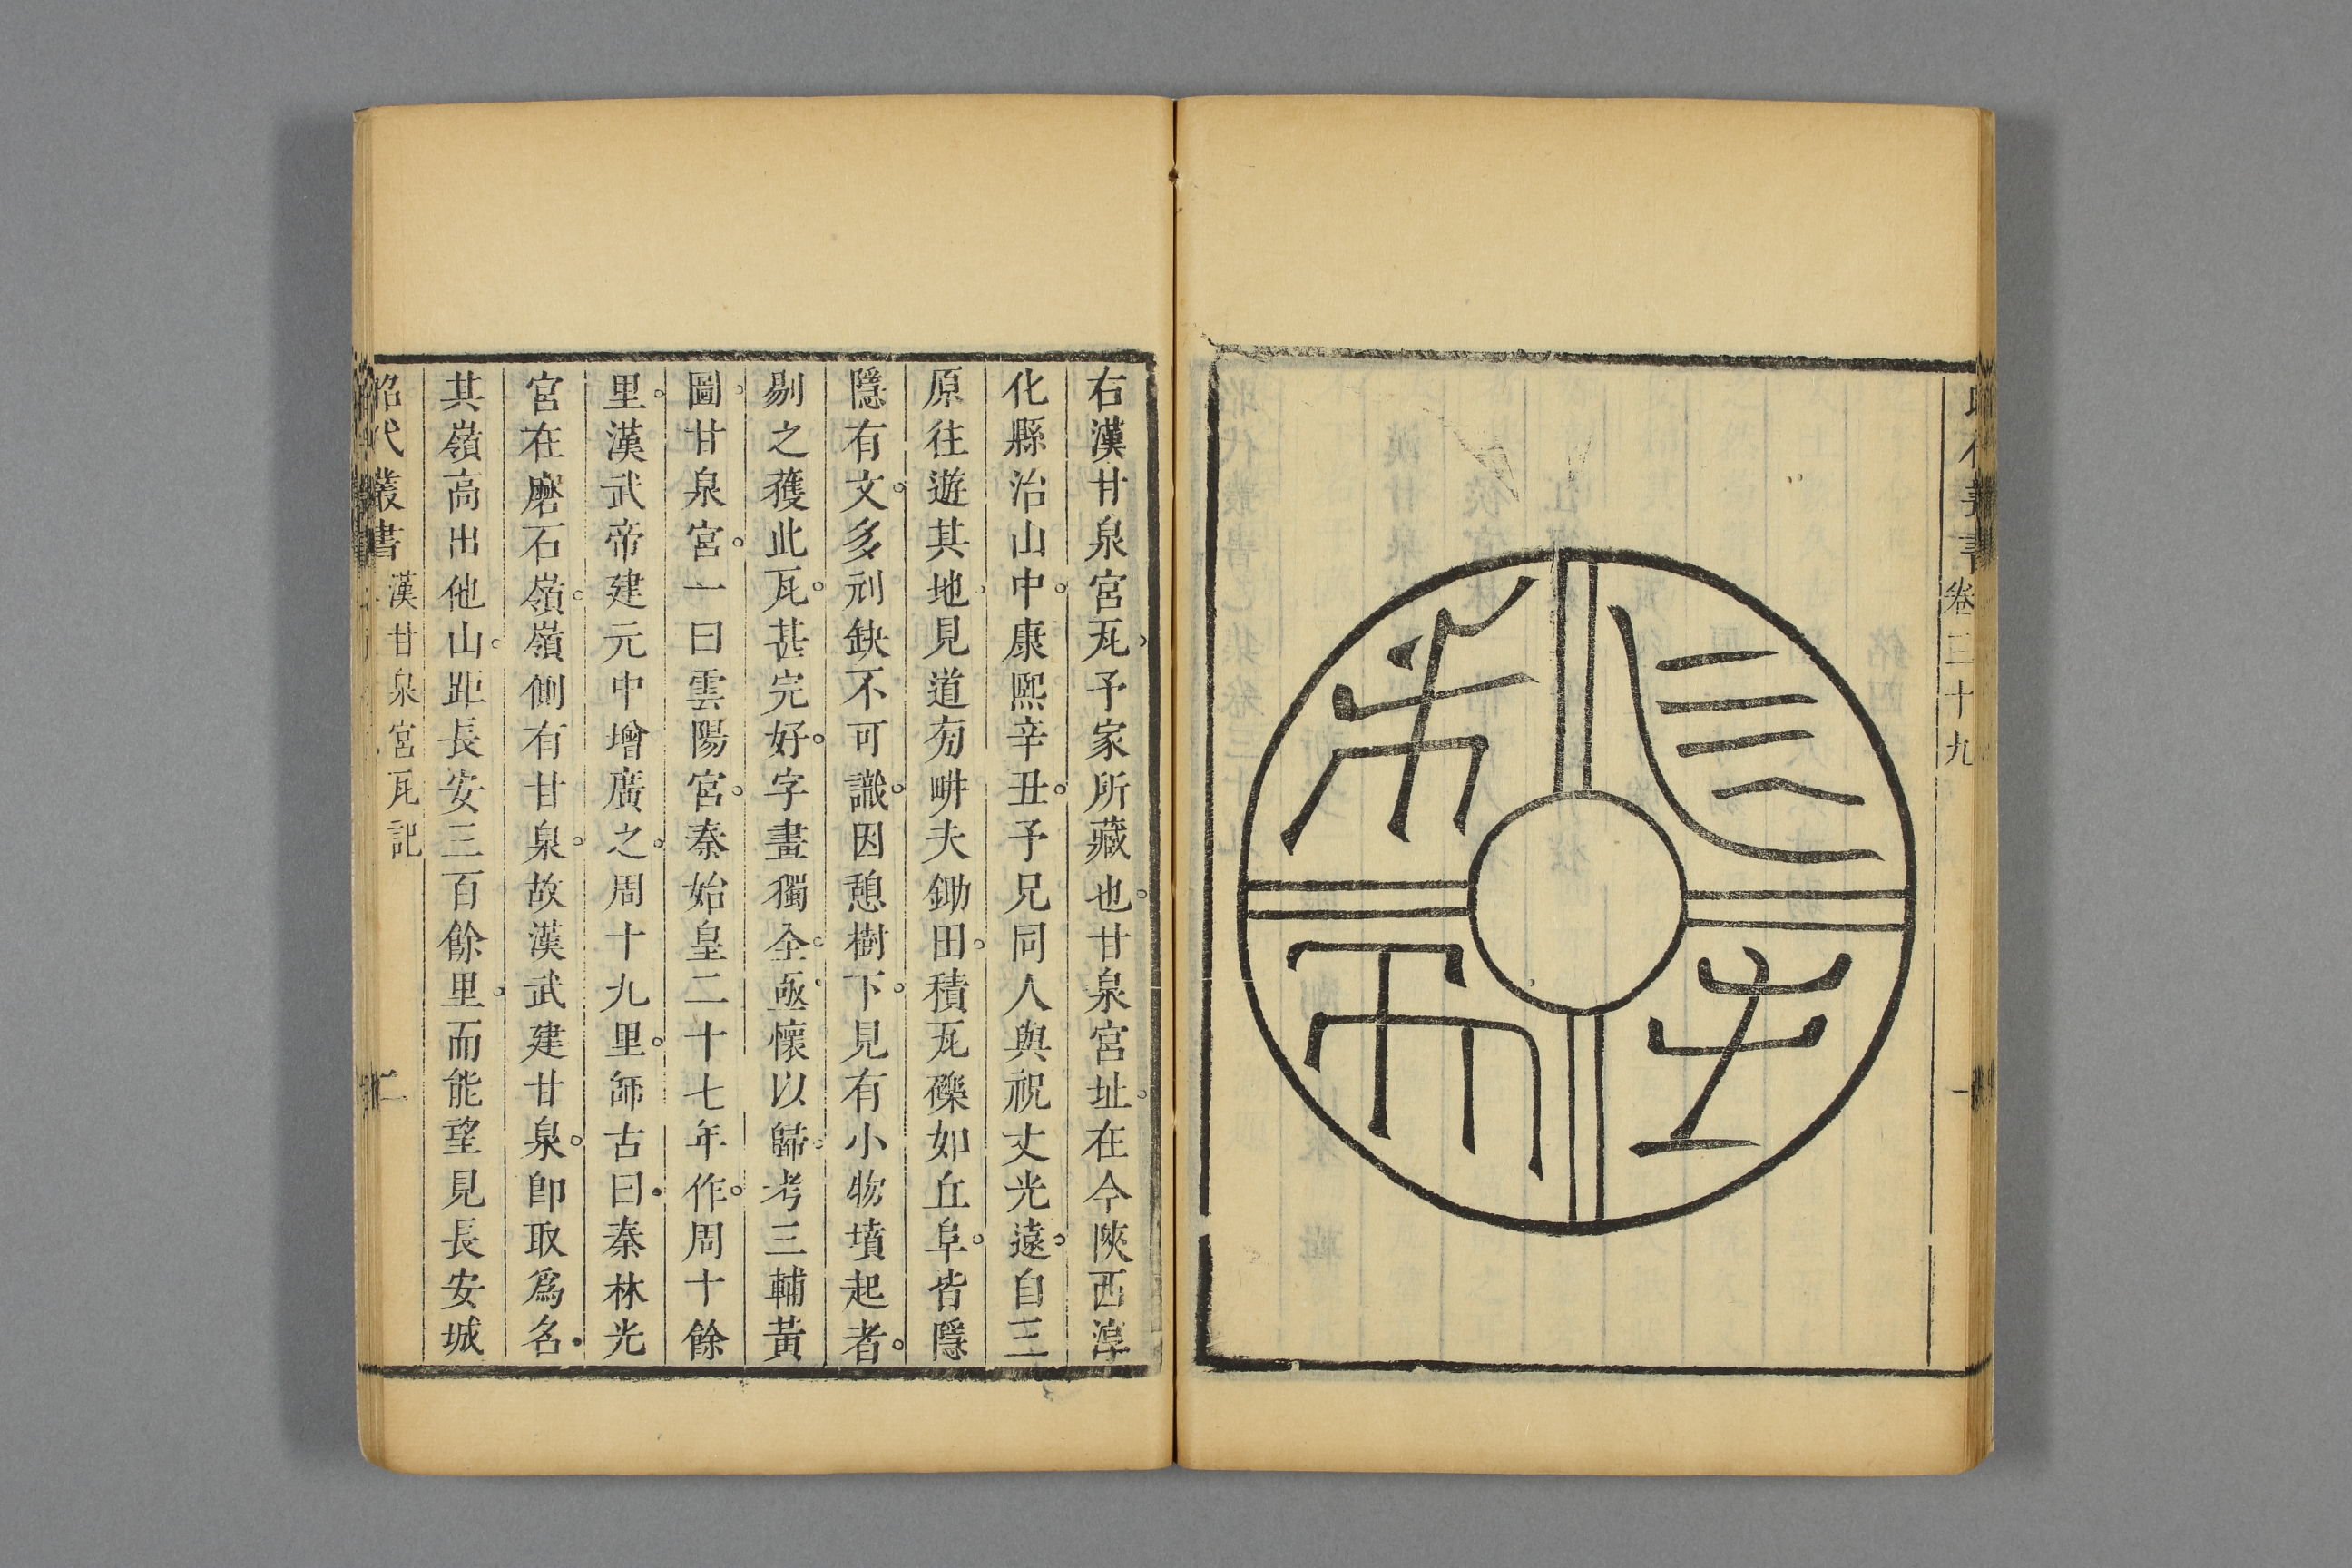 昭代叢書 卷三十九 一
長生未央
右漢甘泉宮瓦。予家所藏也。甘泉宮址。在今陝西淳
化縣治山中。康熙辛丑。予兄同人與祝丈光遠。自三
原往遊其地。見道旁畊夫鋤田。積瓦礫如丘阜。皆隱
隱有文。多刓缺不可識。因憩樹下。見有小物墳起者。
剔之獲此瓦。甚完好。字畫獨全。亟懷以歸。考三輔黃
圖。甘泉宮。一曰雲陽宮。秦始皇二十七年作。周十餘
里。漢武帝建元中增廣之。周十九里。師古曰。秦林光
宮在磨石嶺。嶺側有甘泉。故漢武建甘泉。卽取爲名。
其嶺高出他山。距長安三百餘里。而能望見長安城
昭代叢書 漢甘泉宮瓦記 二